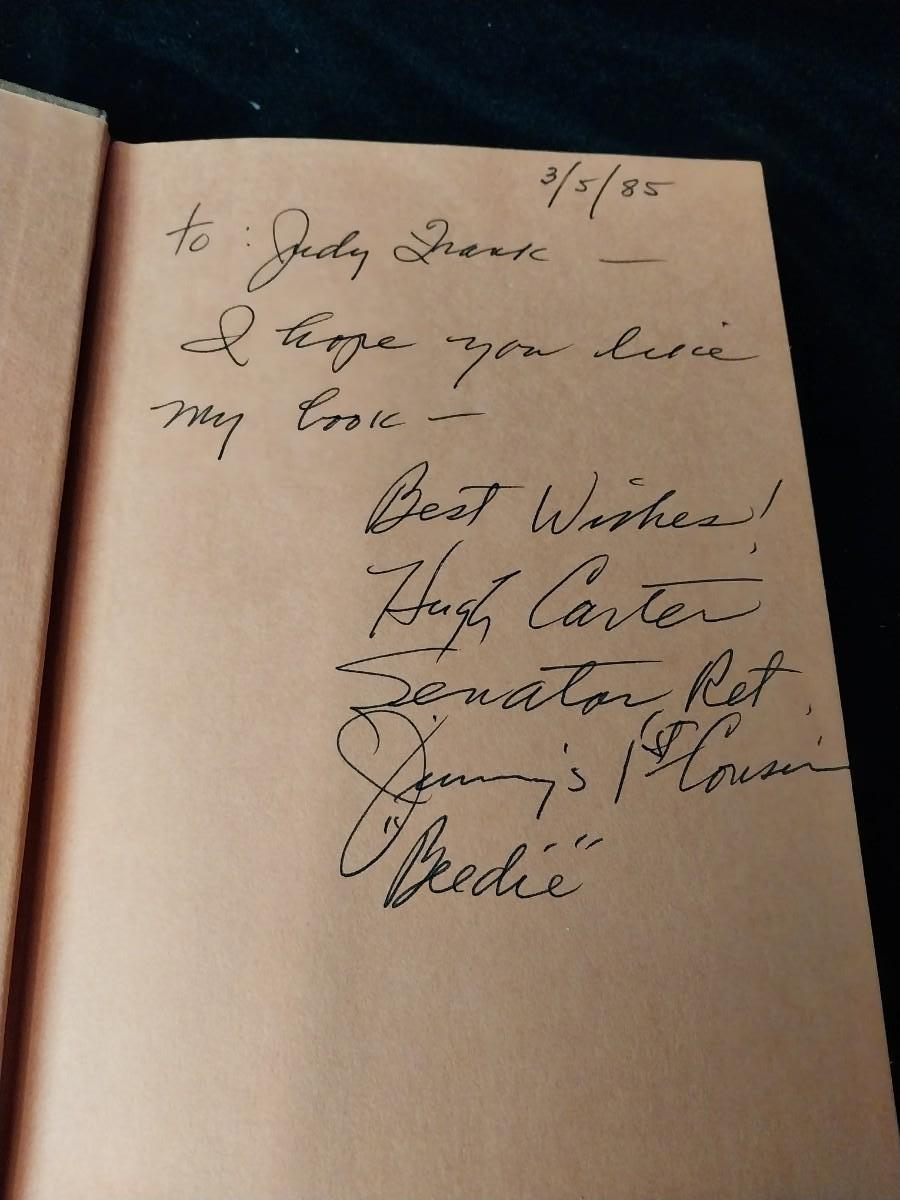 3/5/85
To: Judy Frank —
I hope you like
my book —
Best Wishes!
Hugh Carter
Senator, Ret.
Jimmy's 1st Cousin
"Beedie"